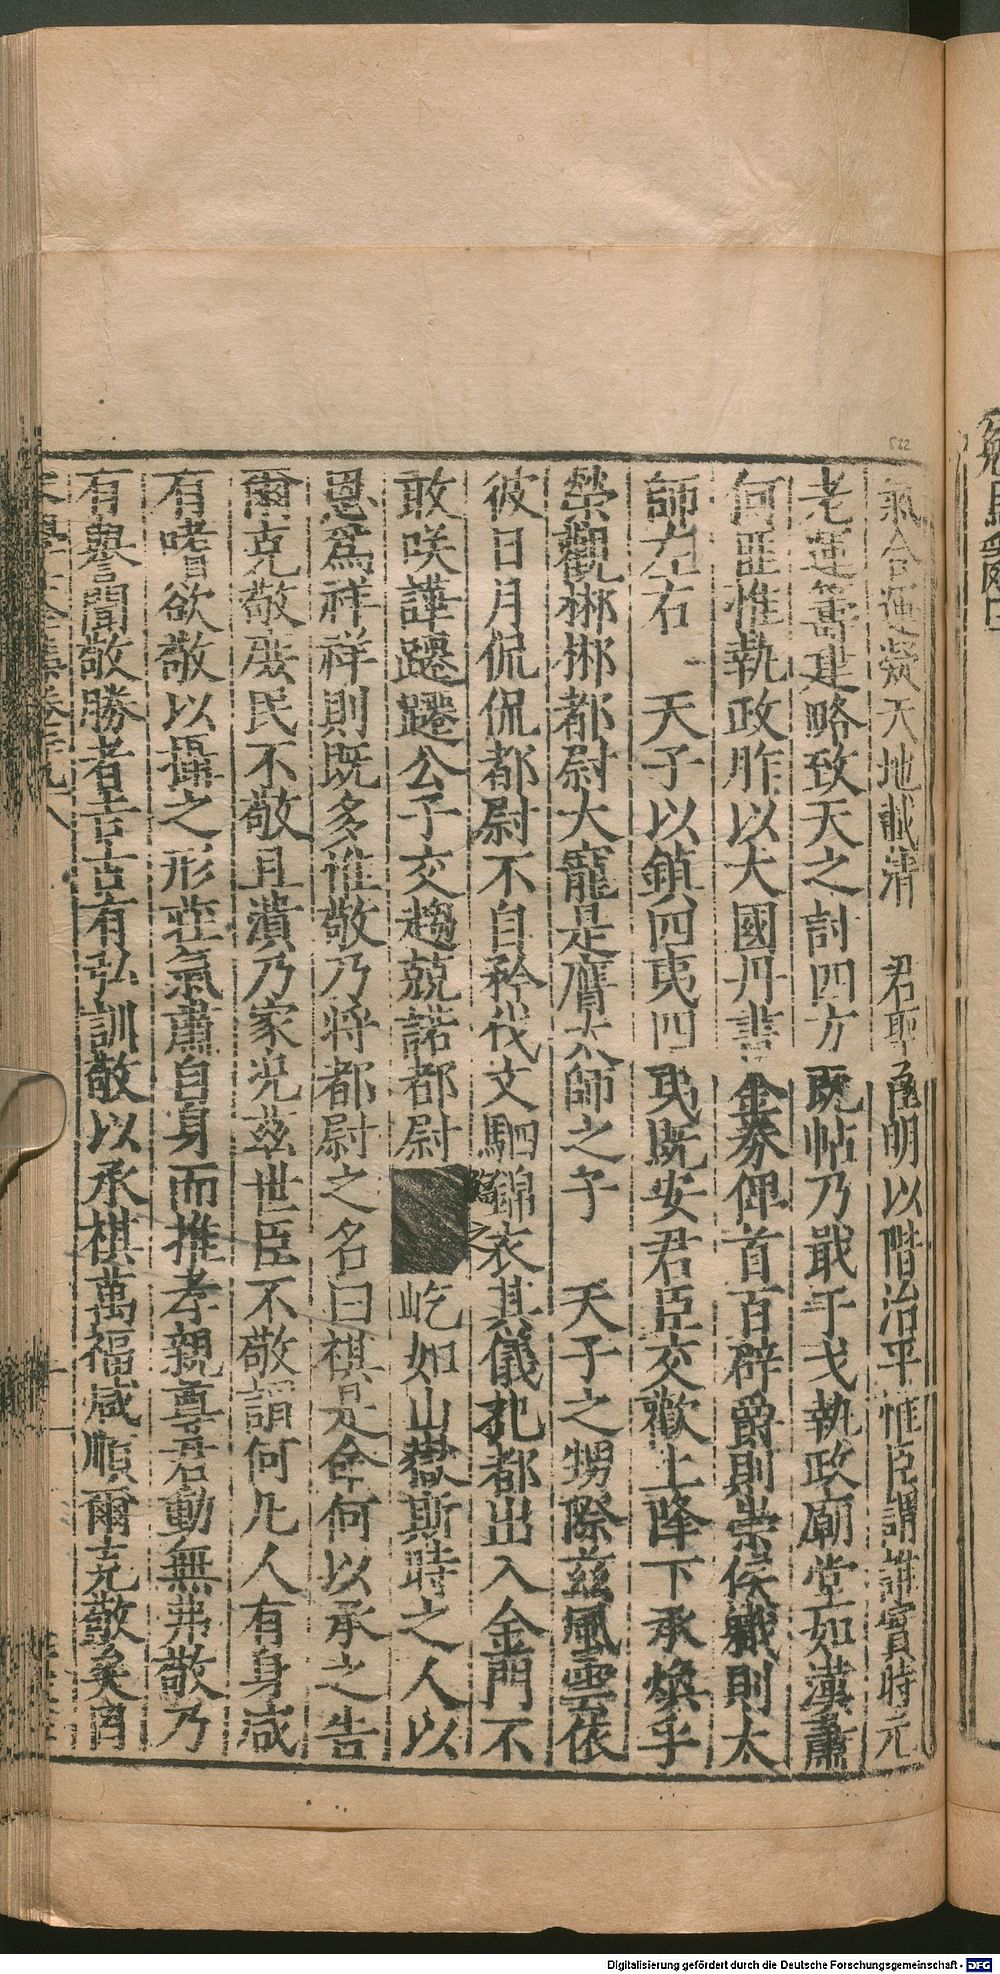 氣合運凝天地誠清 君聖臣明以階治平惟臣謂誰實時元
老運籌建略致天之討四方既帖乃戢干戈執政廟堂如漢蕭
何匪惟執政胙以大國丹書金券俾首百辟爵則崇侯職則太
師左右 天子以鎮四夷四夷既安君臣交歡上降下承煥乎
榮觀梆梆都尉大寵是膺太師之子 天子之甥際茲風雲依
彼日月侃侃都尉不自矜伐文駟錦衣其儀孔都出入金門不
敢咲譁躚躚公子交趨兢諾都尉 之屹如山嶽斯時之人以
恩為祥祥則既多惟敬乃將都尉之名曰祺是合何以承之告
爾克敬庶民不敬且潰乃家況茲世臣不敬謂何凡人有身咸
有嗜欲敬以攝之形莊氣肅自身而推孝親尊君動無弗敬乃
有譽聞敬勝者吉古有弘訓敬以承祺萬福咸順爾克敬矣
522
Digitalisierung gefördert durch die Deutsche Forschungsgemeinschaft - DFG